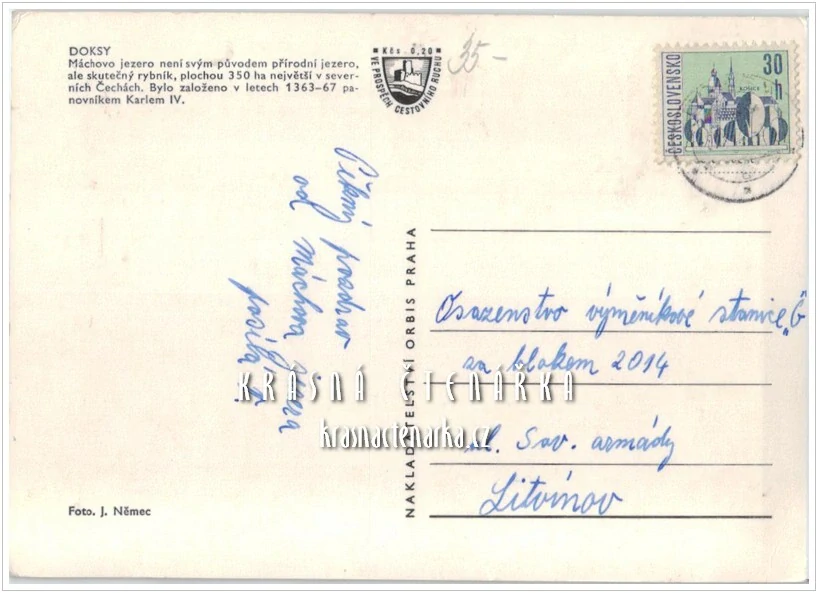 DOKSY
Máchovo jezero není svým původem přírodní jezero,
ale skutečný rybník, plochou 350 ha největší v sever-
ních Čechách. Bylo založeno v letech 1363–67 pa-
novníkem Karlem IV.
Kčs 0,20
VE PROSPĚCH CESTOVNÍHO RUCHU
35-
ČESKOSLOVENSKO
30 h
Pěkný pozdrav
od Máchova jezera
posílá
NAKLADATELSTVÍ ORBIS PRAHA
Osazenstvo výměníkové stanice „G"
za blokem 2014
ul. Sov. armády
Litvínov
KRÁSNÁ ČTENÁŘKA
krasnactenarka.cz
Foto. J. Němec